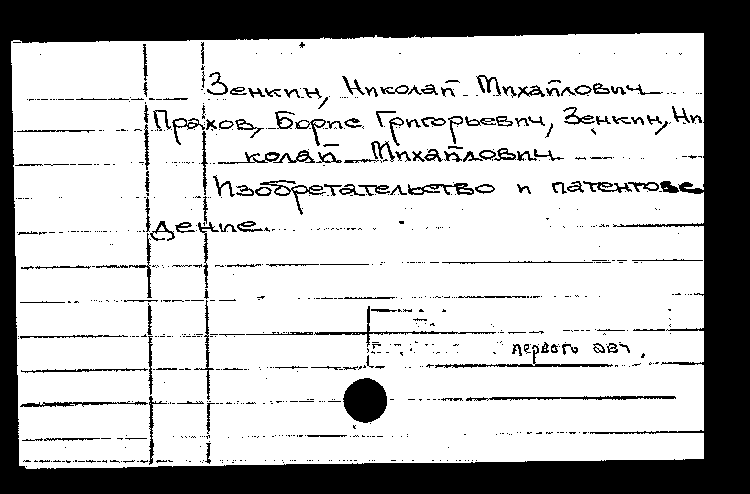 Зенкин, Николай Михайлович
Прахов, Борис Григорьевич, Зенкин, Ни
колай Михайлович
Изобретательство и патентове
дение.
первого